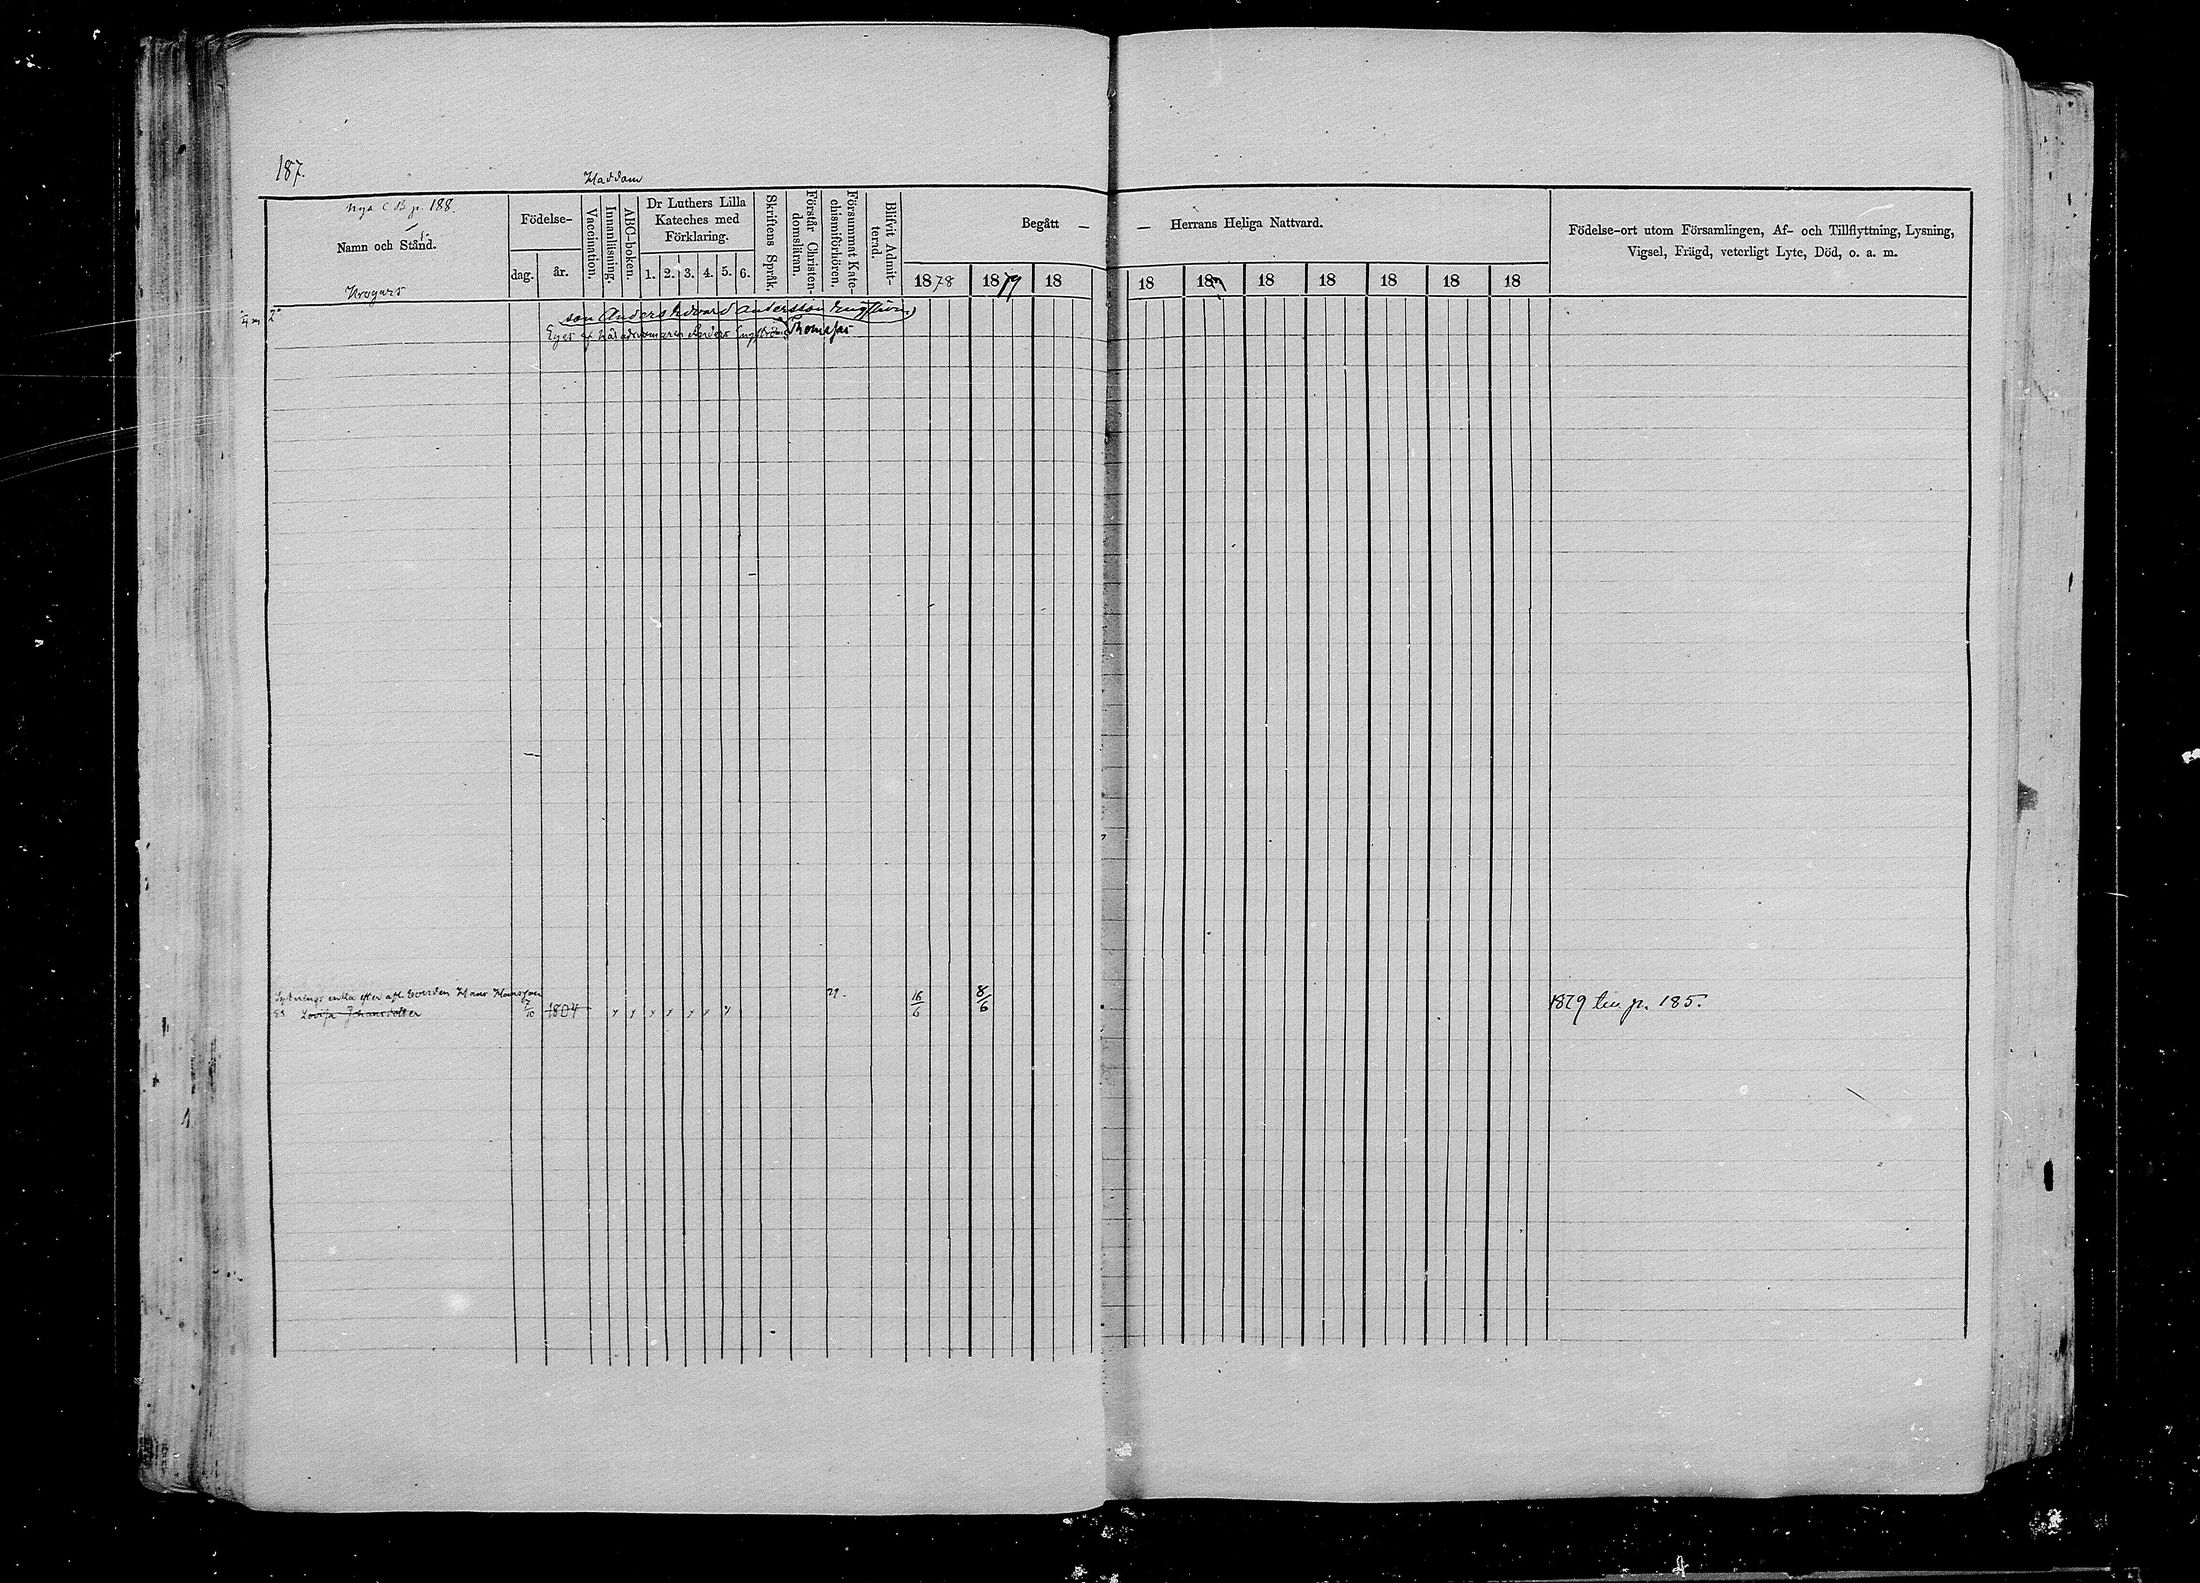 187.
Haddom
Nya C B p. 188.
Namn och Stånd.
Krogars
Födelse-
dag.
år.
Vaccination.
Innanläsning.
ABC-boken.
Dr Luthers Lilla
Kateches med
Förklaring.
1. 2. 3. 4. 5. 6.
Skriftens Språk.
Förstår Christen-
domsläran.
Försummat Kate-
chismiförhören.
Blifvit Admit-
terad.
Begått — — Herrans Heliga Nattvard.
1878 1879 18 18 18 18 18 18 18 18
Födelse-ort utom Församlingen, Af- och Tillflyttning, Lysning,
Vigsel, Frägd, veterligt Lyte, Död, o. a. m.
son Anders Edvard Andersson Engström
Eges af Anders Engström Thomasson
enka efter afl. bonden Hans Hansson
Lovisa Johansdotter 7/10 1804 29. 16/6 8/6 1879 p. 185.